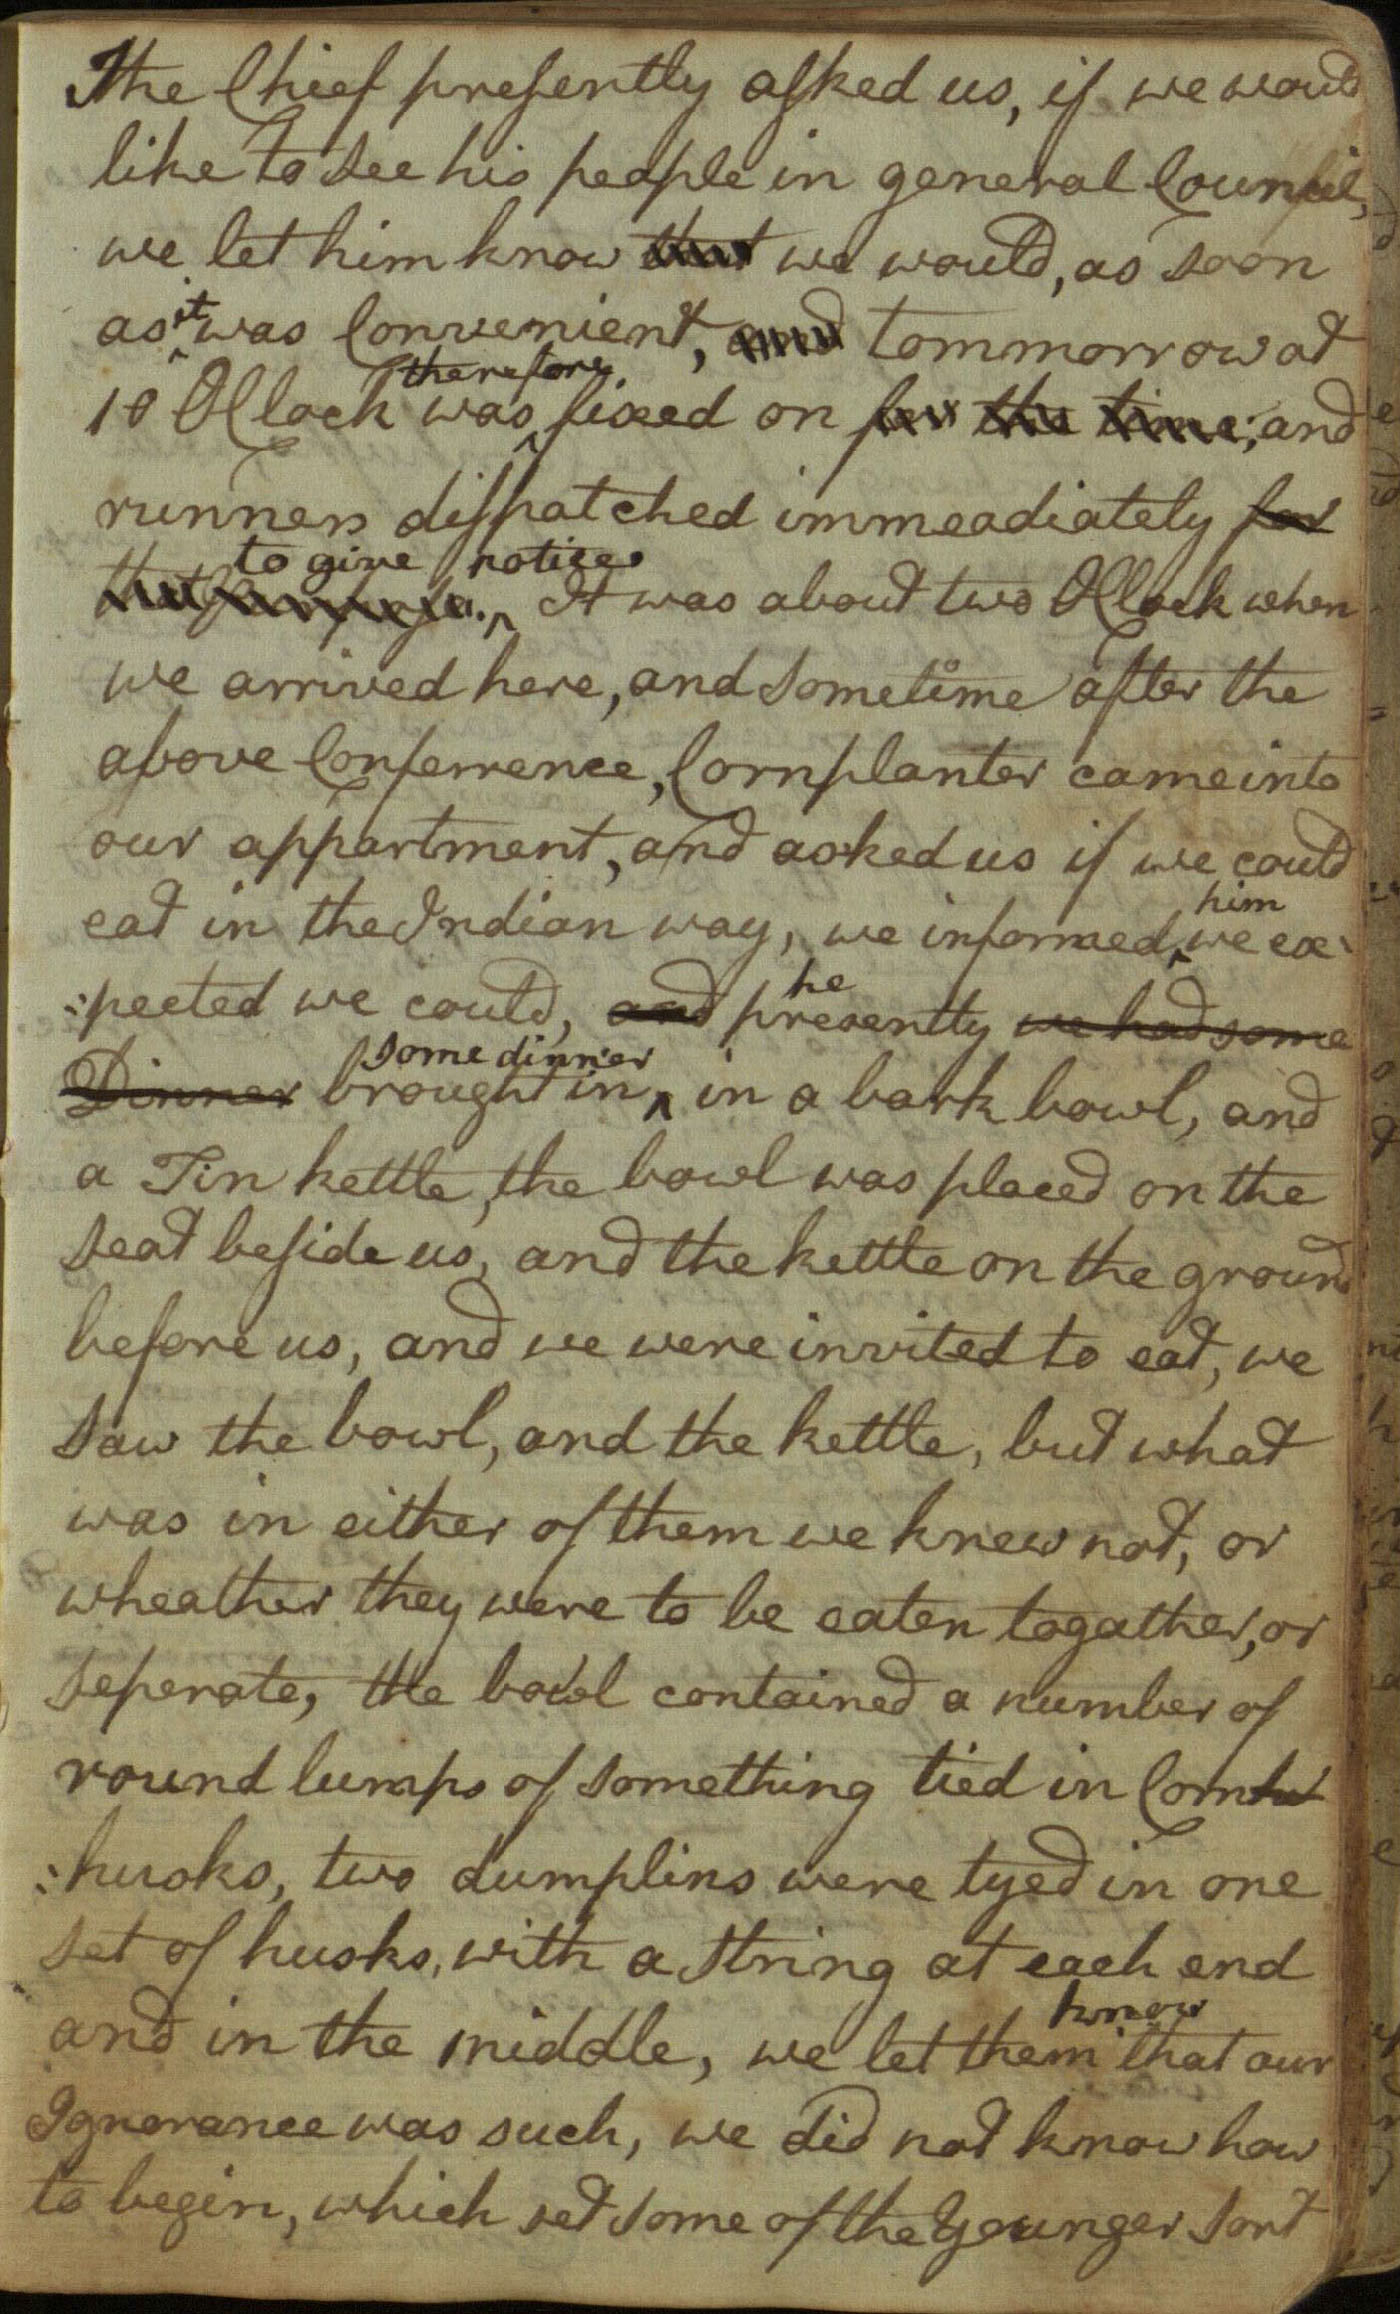 The Chief presently asked us, if we would
like to see his people in general Council,
we let him know that we would, as soon
as it was Convenient, and tommorrow at
10 OClock was therefore fixed on for the time; and
runners dispatched immeadiately for
that purpose. to give notice. It was about two OClock when
we arrived here, and sometime after the
above Conferrence, Cornplanter came into
our appartment, and asked us if we could
eat in the Indian way, we informed him we ex-
:pected we could, and he presently we had some
Dinner brought in some dinner in a bark bowl, and
a Tin kettle, the bowl was placed on the
seat beside us, and the kettle on the ground
before us, and we were invited to eat, we
saw the bowl, and the kettle, but what
was in either of them we knew not, or
wheather they were to be eaten togather, or
seperate, the bowl contained a number of
round lumps of something tied in Corn hu
:husks, two dumplins were tyed in one
set of husks, with a string at each end
and in the middle, we let them know that our
Ignorance was such, we did not know how
to begin, which set some of the Younger sort